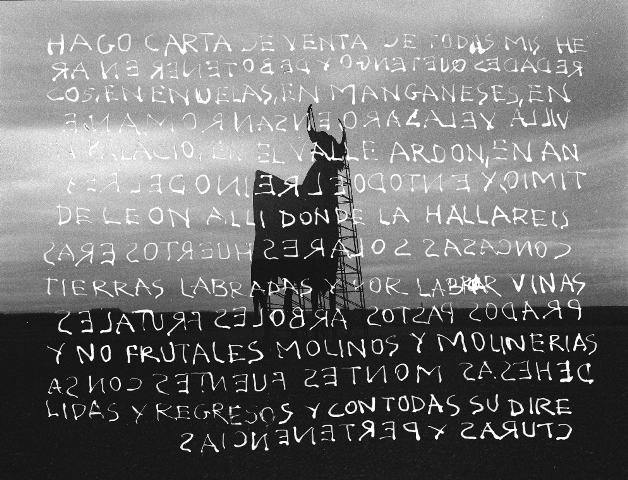 HAGO CARTA DE VENTA DE TODAS MIS HE
REDADES QUE TENGO Y DEBO TENER EN AR
COS, EN ENUELAS, EN MANGANESES, EN
VILLA VELAZARO EN SAN ROMAN E
PALACIO, EN EL VALLE ARDON, EN AN
TIMIO Y EN TODO EL REINO DEL
DE LEON ALLI DONDE LA HALLAREIS
CON CASAS SOLARES HUERTOS ERAS
TIERRAS LABRADAS Y POR LABRAR VINAS
PRADOS PASTOS ARBOLES FRUTALES
Y NO FRUTALES MOLINOS Y MOLINERIAS
DEHESAS MONTES FUENTES CON SA
LIDAS Y REGRESOS Y CON TODAS SU DIRE
CTURAS Y PERTENENCIAS